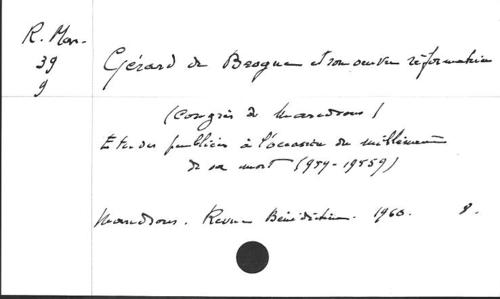 R. Mon.
39
9
Gérard de Brogne et son œuvre réformatrice
(Congrès de Maredsous)
Etudes publiées à l'occasion du millénaire
de sa mort (959-1959)
Maredsous. Revue Bénédictine. 1960. 8.